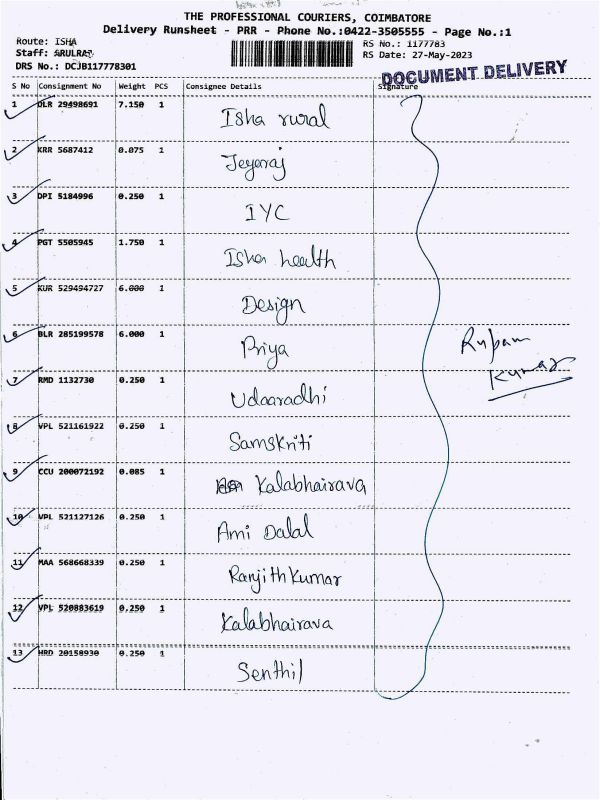 THE PROFESSIONAL COURIERS, COIMBATORE
Delivery Runsheet - PRR - Phone No.:0422-3505555 - Page No.:1
Route: ISHA
Staff: ARULRAJ
DRS No.: DCJB117778301
RS No.: 1177783
RS Date: 27-May-2023
DOCUMENT DELIVERY
S No Consignment No Weight PCS Consignee Details Signature
1 DLR 29498691 7.150 1 Isha rural
2 KRR 5687412 0.075 1 Jeyaraj
3 DPI 5184996 0.250 1 IYC
4 PGT 5505945 1.750 1 Isha health
5 KUR 529494727 6.000 1 Design
6 BLR 285199578 6.000 1 Priya
7 RMD 1132730 0.250 1 Udaaradhi
8 VPL 521161922 0.250 1 Samskriti
9 CCU 200072192 0.085 1 Kalabhairava
10 VPL 521127126 0.250 1 Ami Dalal
11 MAA 568668339 0.250 1 Ranjith Kumar
12 VPL 520883619 0.250 1 Kalabhairava
13 HRD 20158930 0.250 1 Senthil
Rupam
Kumar